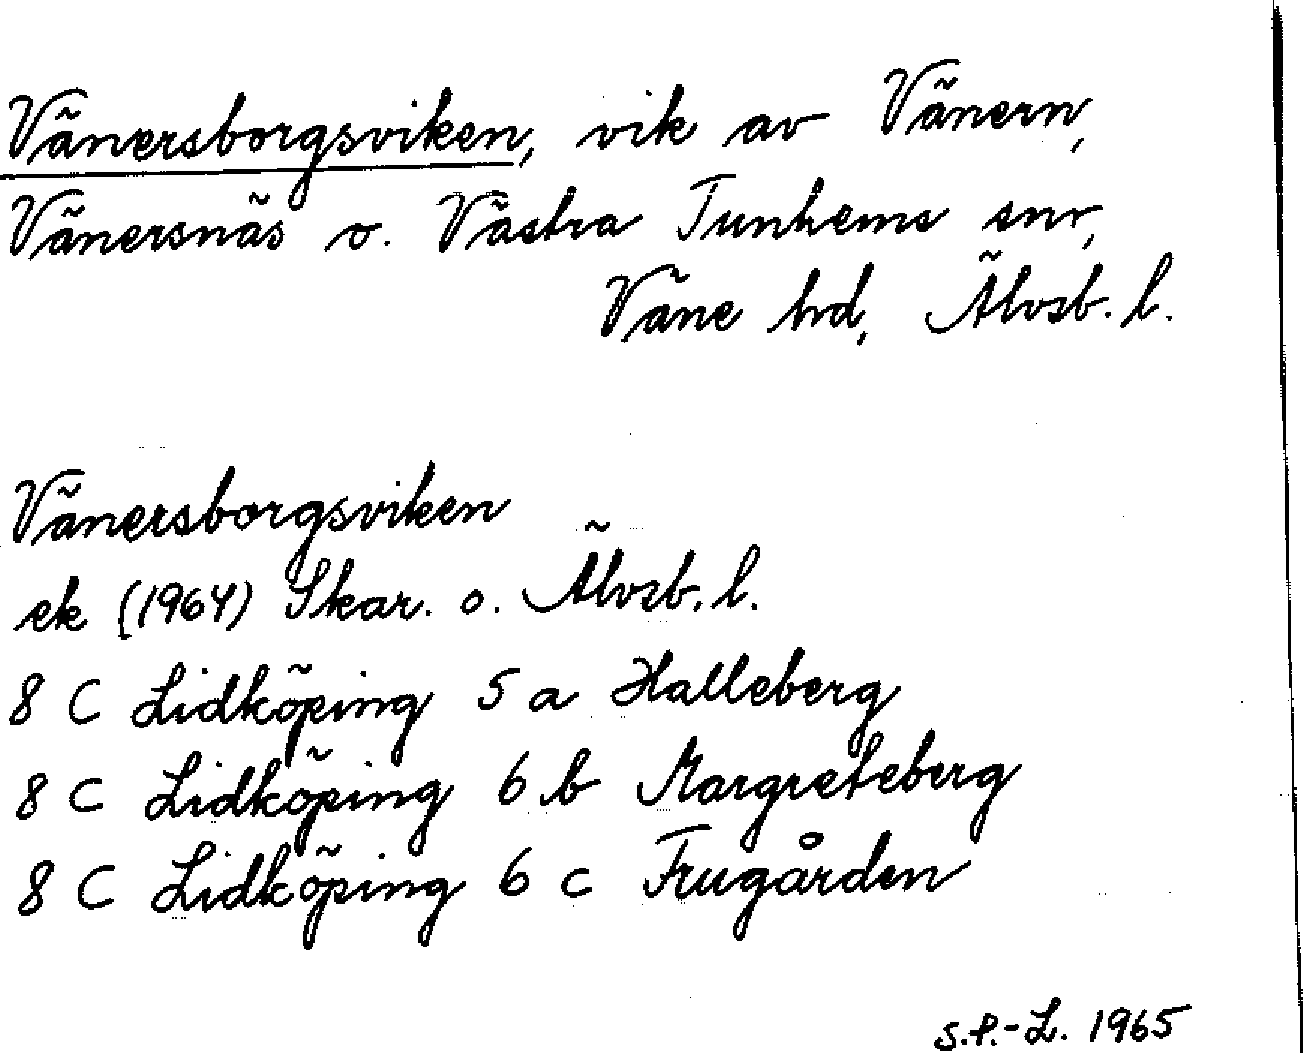 Vänersborgsviken, vik av Vänern,
Vänersnäs o. Västra Tunhems snr,
Väne hd, Älvsb. l.
Vänersborgsviken
ek (1964) Skar. o. Älvsb. l.
8 C Lidköping 5 a Halleberg
8 C Lidköping 6 b Margreteberg
8 C Lidköping 6 c Frugården
S.P.-L. 1965